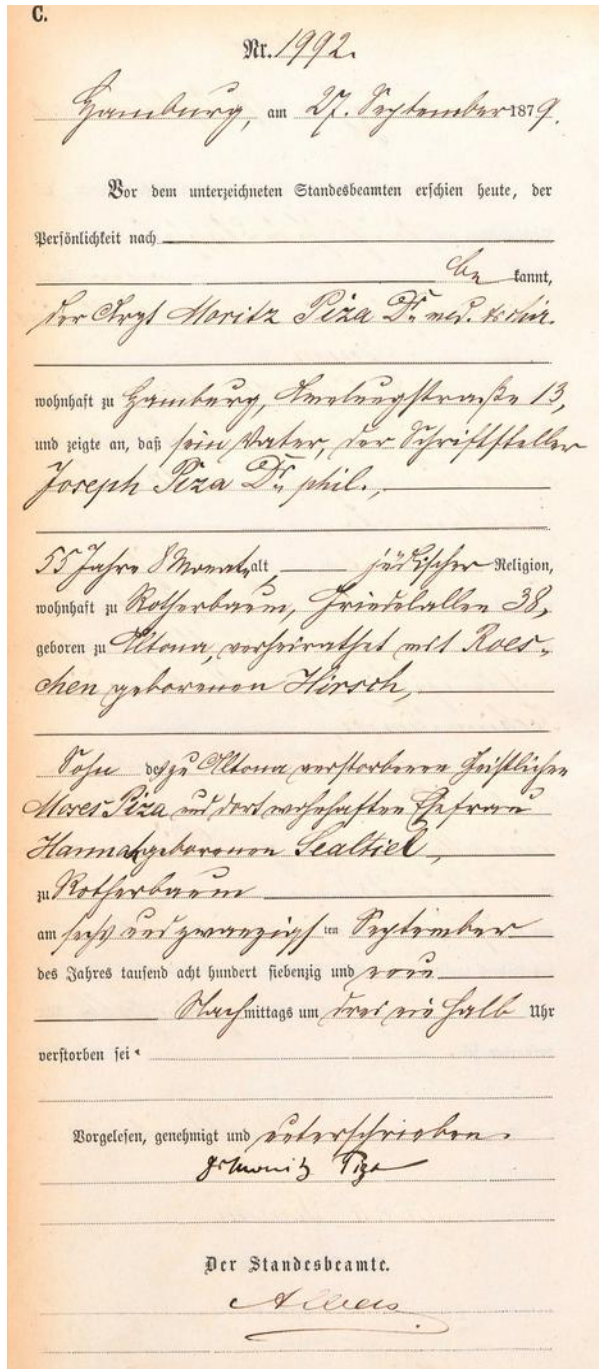 C.
Nr. 1992.
Hamburg, am 27. September 1879.
Vor dem unterzeichneten Standesbeamten erschien heute, der
Persönlichkeit nach
be kannt,
der Arzt Moritz Piza Dr. med. & chir.
wohnhaft zu Hamburg, Amelungstraße 13,
und zeigte an, daß sein Vater, der Schriftsteller
Joseph Piza Dr. phil.,
55 Jahre 8 Monate alt, jüdischer Religion,
wohnhaft zu Rotherbaum, Grindelallee 38,
geboren zu Altona, verheirathet mit Roes-
chen geborenen Hirsch,
Sohn des zu Altona verstorbenen Geistlichen
Moses Piza und dort wohnhaften Ehefrau
Hannah geborenen Sealtiel,
zu Rotherbaum
am sechs und zwanzigsten September
des Jahres tausend acht hundert siebenzig und neun
Nachmittags um drei ein halb Uhr
verstorben sei.
Vorgelesen, genehmigt und unterschrieben.
Dr Moritz Piza
Der Standesbeamte.